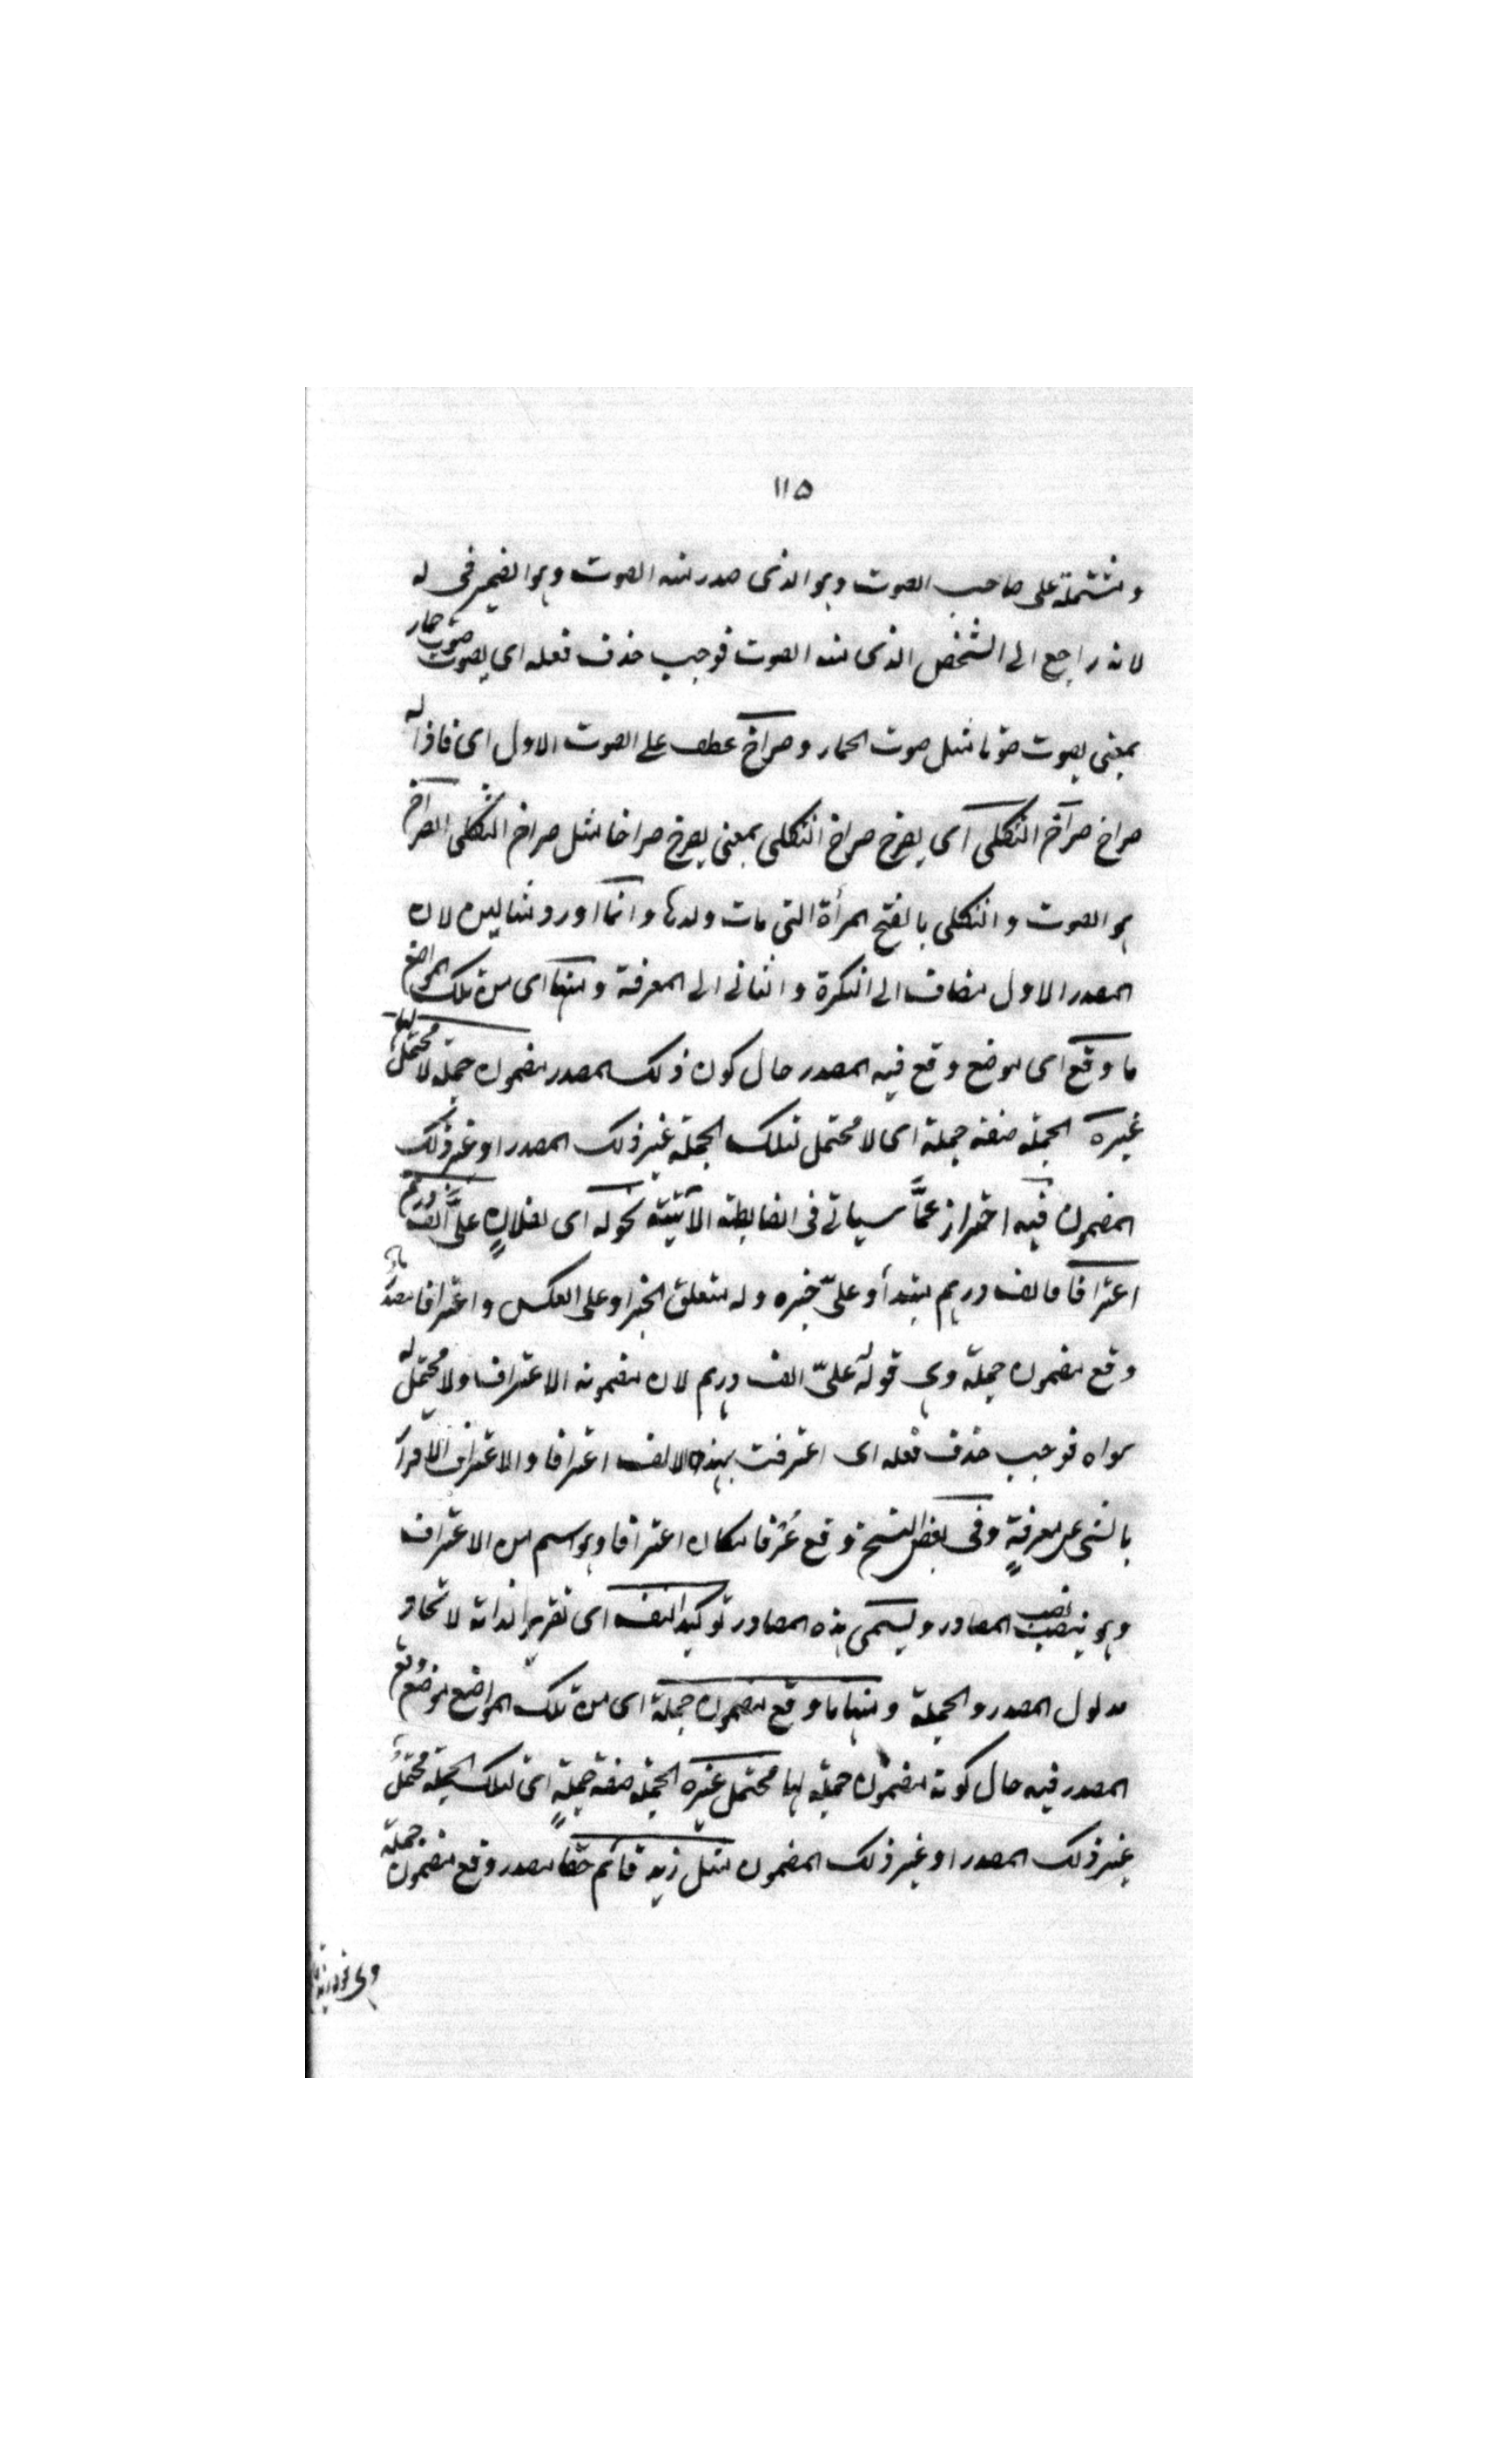 ١١٥
ومشتملة على صاحب الصوت وهو الذى صدر منه الصوت وهو الضمير فى له
لانه راجع الى الشخص الذى منه الصوت فوجب حذف فعله اى يصوت صوت حمار
بمعنى يصوت صوتا مثل صوت الحمار وصراخ عطف على الصوت الاول اى فاذا له
صراخ صراخ الثكلى اى يصرخ صراخ الثكلى بمعنى يصرخ صراخا مثل صراخ الثكلى الصراخ
هو الصوت والثكلى بالفتح المرأة التى مات ولدها وانما اورد مثالين لان
المصدر الاول مضاف الى النكرة والثانى الى المعرفة ومنها اى من تلك المواضع
ما وقع اى موضع وقع فيه المصدر حال كون ذلك المصدر مضمون جملة لا محتمل لها
غيره الجملة صفة جملة اى لا محتمل لتلك الجملة غير ذلك المصدر او غير ذلك
المضمون فيه احتراز عمَّا سياتى فى الضابطة الآتيتة نحو له اى لفلانٍ علىَّ الف درهم
اعترافا فالف درهم مبتدأ وعلىّ خبره وله متعلق الخبر او على العكس واعترافا مصدر
وقع مضمون جملة وهى قوله له علىّ الف درهم لان مضمونه الاعتراف ولا محتمل له
سواه فوجب حذف فعله اى اعترفت بهذه الالف اعترافا والاعتراف الاقرار
بالشى عن معرفةٍ وفى بعض النسخ وقع عُرْفا مكان اعترافا وهو اسم من الاعتراف
وهو ينصب نصب المصادر ويسمى هذه المصادر توكيدا لنفسه اى تقريرا لذاته لاتحاد
مدلول المصدر والجملة ومنها ما وقع مضمون جملة اى من تلك المواضع موضع وقع
المصدر فيه حال كونه مضمون جملة لها محتمل غيره الجملة صفة جملةٍ اى لتلك الجملة محتملٌ
غير ذلك المصدر او غير ذلك المضمون مثل زيد قائم حقا مصدر وقع مضمون جملة